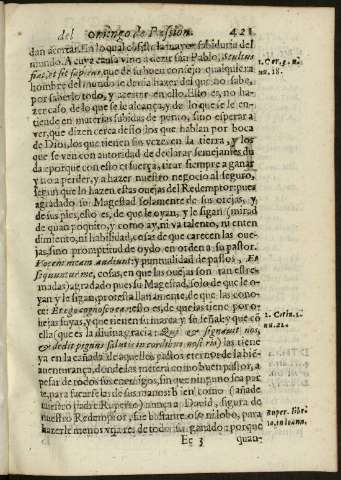 del domingo de Passion. 421
dan acertar. En lo qual consiste la mayor sabiduria del
mundo. A cuya causa vino a dezir san Pablo, Stultus
fiat, vt sit sapiens, que de su buen consejo qualquiera
hombre del mundo se deuia hazer del que no sabe,
por saberlo todo, y acertar en ello. Esto es, no ha-
zer caso de lo que se le alcança, y de lo que se le en-
tiende en materias subidas de punto, sino esperar a
ver, que dizen cerca desto los que hablan por boca
de Dios, los que tienen sus vezes en la tierra, y los
que se ven con autoridad de declarar semejantes du
das porque con esto es fuerça, tirar siempre a ganar
y no a perder, y a hazer nuestro negocio al seguro,
segun que lo hazen estas ouejas del Redemptor: pues
agradado su Magestad solamente de sus orejas, y
de sus pies, esto es, de que le oyan, y le sigan (mirad
de quan poquito, y como ay, ni va talento, ni enten
dimiento, ni habilidad, cosas de que carecen las oue
jas, sino promptitud de oydo en orden a su pastor.
Vocem meam audiunt: y puntualidad de passos, Et
sequuntur me, cosas, en que las ouejas son tan estre-
madas) agradado pues su Magestad, solo de que le o-
yan y le sigan, protesta llanamente, de que las cono-
ce: Et ego cognosco eas: esto es, de que las tiene por o-
uejas suyas, y que tienen su marca y su señal: y que cõ
ella (que es la diuina gracia: Qui & signauit nos,
& dedit pignus salutis in cordibus nostris) las tiene
ya en la cañada de aquellos pastos eternos de la bie-
auenturança, donde las metera como buen pastor, a
pesar de todos sus enemigos, sin que ninguno sea par
te, para sacarselas de sus manos: bien como (añade
nuestro Padre Ruperto) nunca a Dauid, figura de
nuestro Redemptor, fue bastante osso, ni lobo, para
hazerle menos vna res de todo su ganado: a porque
Ee 3 quan-
1. Cor. 3. n.
nu. 18.
2. Corin. 1.
nu. 22.
Ruper. libr.
10. in Ioann.